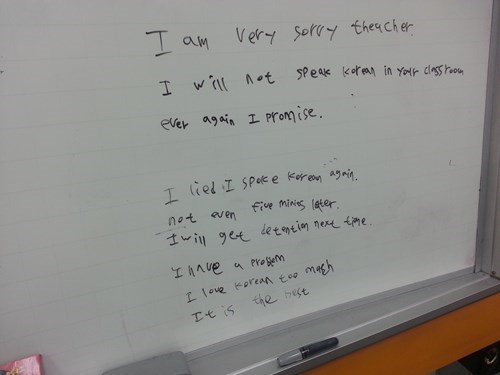 I am very sorry theacher.
I will not speak korean in your classroom
ever again I promise.
I lied I spoke korean again.
not even five minits later.
I will get detention next time.
I have a problem
I love korean too much
It is the best